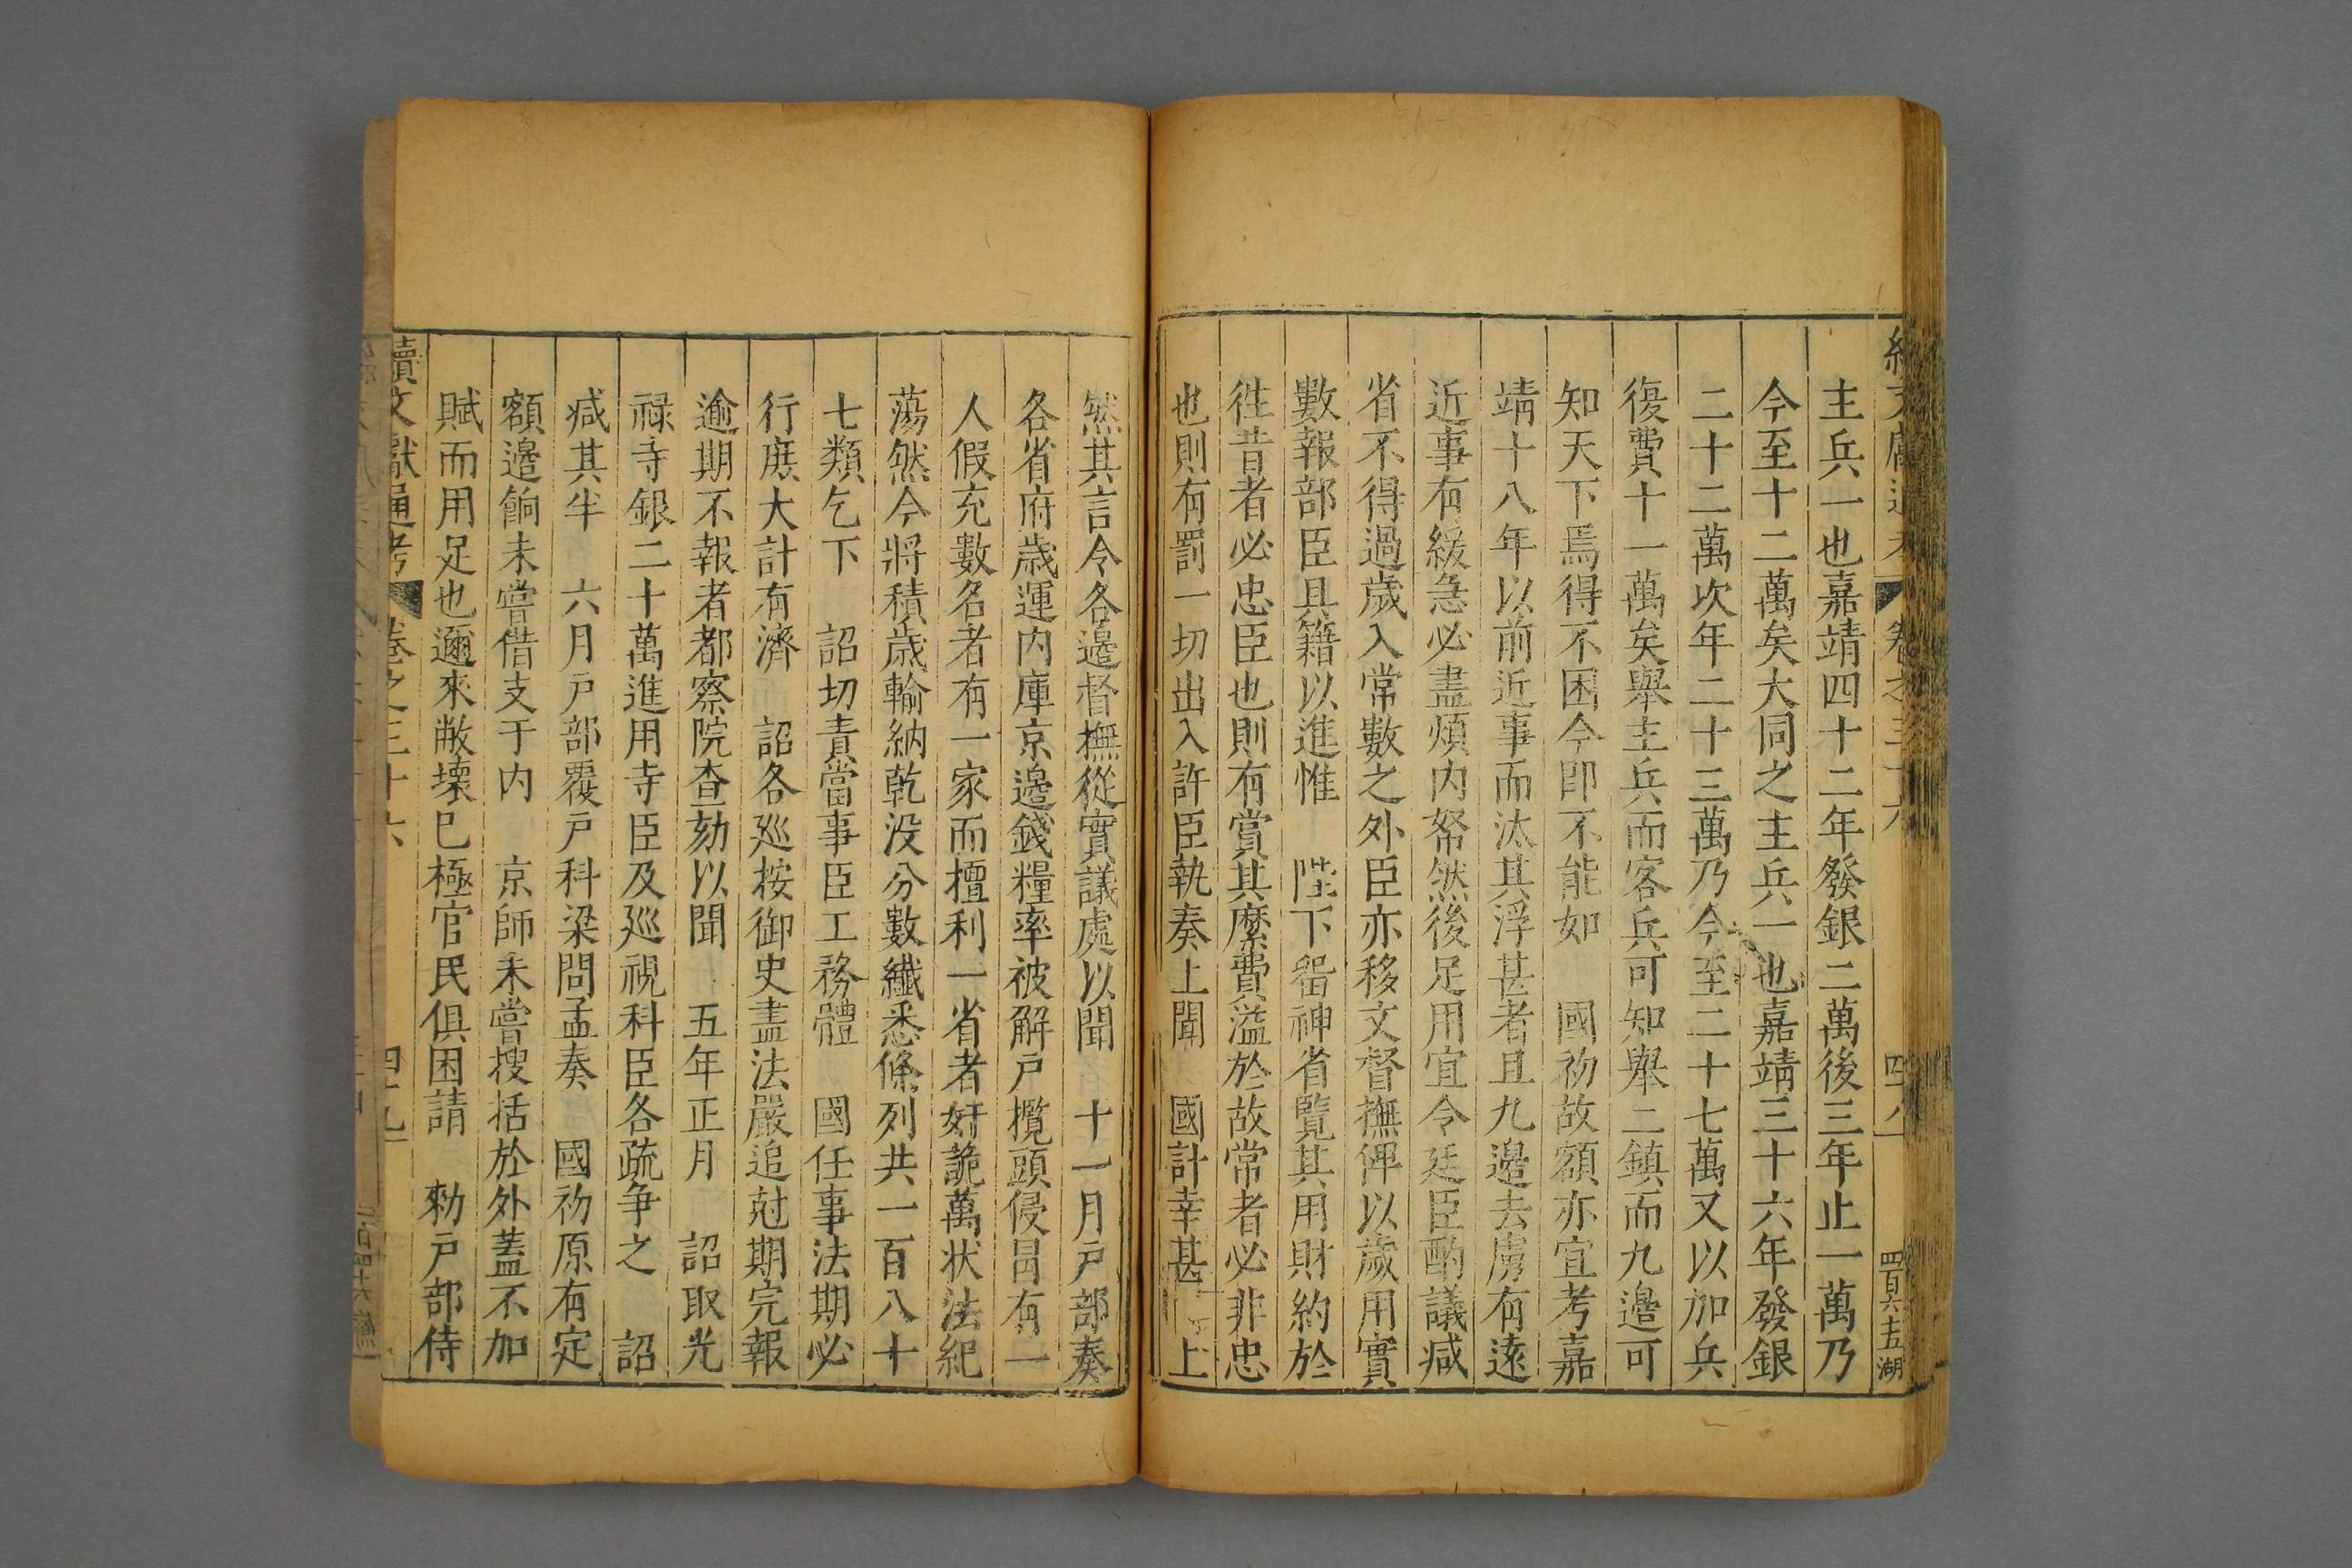 主兵一也嘉靖四十二年發銀二萬後三年止一萬乃
今至十二萬矣大同之主兵一也嘉靖三十六年發銀
二十二萬次年二十三萬乃今至二十七萬又以加兵
復費十一萬矣舉主兵而客兵可知舉二鎮而九邊可
知天下焉得不困今即不能如 國初故額亦宜考嘉
靖十八年以前近事而汰其浮甚者且九邊去虜有遠
近事有緩急必盡煩内帑然後足用宜令廷臣酌議減
省不得過歲入常數之外臣亦移文督撫俾以歲用實
數報部臣具籍以進惟 陛下留神省覽其用財約於
徃昔者必忠臣也則有賞其麼費溢於故常者必非忠
也則有罰一切出入許臣執奏上聞 國計幸甚 上
然其言令各邊督撫從實議處以聞 十一月戸部奏
各省府歳運内庫京邊錢糧率被解戸攬頭侵冐有一
人假充數名者有一家而擅利一省者奸詭萬状法紀
蕩然今將積歳輸納乾没分數纖悉條列共一百八十
七類乞下 詔切責當事臣工務體 國任事法期必
行庶大計有濟 詔各廵按御史盡法嚴追尅期完報
逾期不報者都察院查劾以聞 五年正月 詔取光
禄寺銀二十萬進用寺臣及廵視科臣各疏争之 詔
減其半 六月戸部覆戸科梁問孟奏 國初原有定
額邊餉未嘗借支于内 京師未嘗搜括於外蓋不加
賦而用足也邇來敝壊已極官民俱困請 勑戸部侍
續文獻通考 卷之三十六 四十九